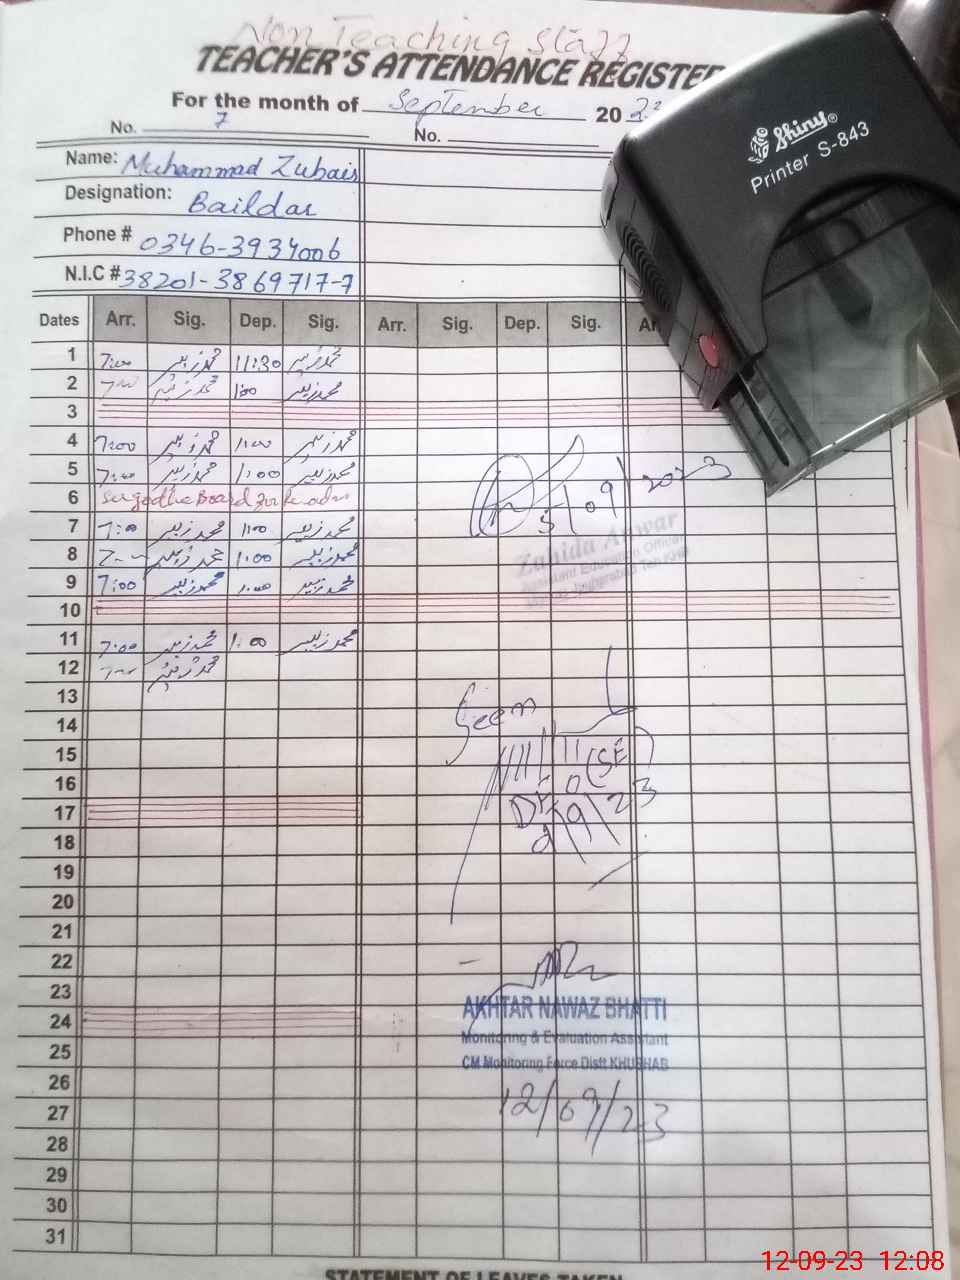 Non Teaching Staff
TEACHER'S ATTENDANCE REGISTER
For the month of September 20 23
No. 7 No.
Name: Muhammad Zubair
Designation: Baildar
Phone # 0346-3934006
N.I.C # 38201-3869717-7
Shiny®
Printer S-843
Dates Arr. Sig. Dep. Sig. Arr. Sig. Dep. Sig.
1 7:00 محمد زبیر 11:30 محمد زبیر
2 7:00 محمد زبیر 1:00 محمد زبیر
3
4 7:00 محمد زبیر 1:00 محمد زبیر
5 7:00 محمد زبیر 1:00 محمد زبیر
6 Sargodha Board
7 7:00 محمد زبیر 1:00 محمد زبیر
8 7:00 محمد زبیر 1:00 محمد زبیر
9 7:00 محمد زبیر 1:00 محمد زبیر
10
11 7:00 محمد زبیر 1:00 محمد زبیر
12 7:00 محمد زبیر
13
14
15
16
17
18
19
20
21
22
23
24
25
26
27
28
29
30
31
5/09/2023
Zahida Anwar
Assistant Education Officer
Seen
DEO (SE)
9/23
AKHTAR NAWAZ BHATTI
Monitoring & Evaluation Assistant
CM Monitoring Force Distt KHUSHAB
12/09/23
STATEMENT OF LEAVES TAKEN
12-09-23 12:08